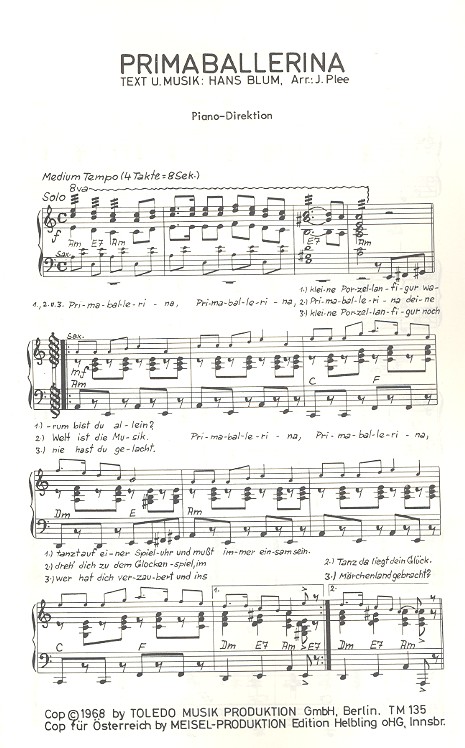 PRIMABALLERINA
TEXT U. MUSIK: HANS BLUM, Arr.: J. Plee
Piano-Direktion
Medium Tempo (4 Takte = 8 Sek.)
Solo 8va
f
Am E7 Am E7 Am
Sax.
1.) klei-ne Por-zel-lan-fi-gur wa-
1., 2. u. 3. Pri-ma-bal-le-ri-na, Pri-ma-bal-le-ri-na, 2.) Pri-ma-bal-le-ri-na dei-ne
3.) klei-ne Por-zel-lan-fi-gur noch
Sax.
mf
Am C F
1.) -rum bist du al-lein?
2.) Welt ist die Mu-sik. Pri-ma-bal-le-ri-na, Pri-ma-bal-le-ri-na,
3.) nie hast du ge-lacht.
Dm E Am
1.) tanzt auf ei-ner Spiel-uhr und mußt im-mer ein-sam sein.
2.) dreh' dich zu dem Glocken-spiel, im 2.) Tanz da liegt dein Glück.
3.) wer hat dich ver-zau-bert und ins 3.) Märchenland gebracht?
1. 2.
C F Dm E7 Am E7 Dm E7 Am
Cop © 1968 by TOLEDO MUSIK PRODUKTION GmbH, Berlin. TM 135
Cop für Österreich by MEISEL-PRODUKTION Edition Helbling oHG, Innsbr.